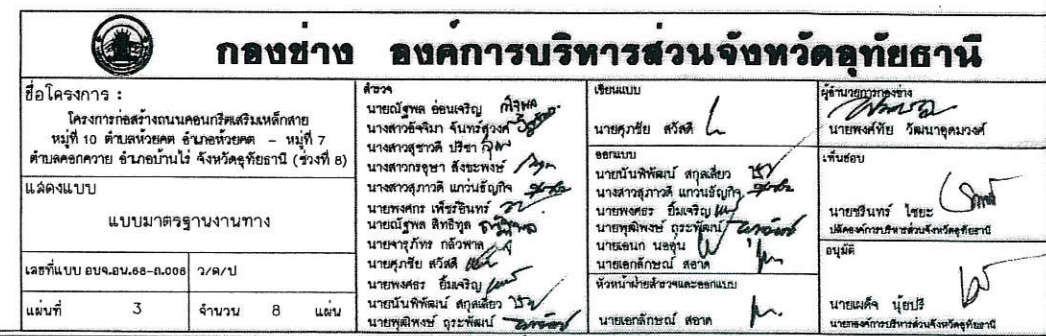 กองช่าง องค์การบริหารส่วนจังหวัดอุทัยธานี
ชื่อโครงการ :
โครงการก่อสร้างถนนคอนกรีตเสริมเหล็กสาย
หมู่ที่ 10 ตำบลห้วยคต อำเภอห้วยคต - หมู่ที่ 7
ตำบลคอกควาย อำเภอบ้านไร่ จังหวัดอุทัยธานี (ช่วงที่ 8)
แสดงแบบ
แบบมาตรฐานงานทาง
เลขที่แบบ อบจ.อน.68-ถ.008 ว/ด/ป
แผ่นที่ 3 จำนวน 8 แผ่น
สำรวจ
นายณัฐพล อ่อนเจริญ
นางสาวอัจจิมา จันทร์สุวงค์
นางสาวสุชาวดี ปรีชา
นางสาวกรอุษา สังขะพงษ์
นางสาวสุภาวดี แกว่นธัญกิจ
นายพงศกร เพ็ชรอินทร์
นายณัฐพล สิทธิทูล
นายจารุภัทร กลัวพาล
นายศุภชัย สวัสดี
นายพงศธร ยิ้มเจริญ
นายนันพิพัฒน์ สกุลเสี่ยว
นายพุฒิพงษ์ ถุระพัฒน์
เขียนแบบ
นายศุภชัย สวัสดี
ออกแบบ
นายนันพิพัฒน์ สกุลเสี่ยว
นางสาวสุภาวดี แกว่นธัญกิจ
นายพงศธร ยิ้มเจริญ
นายพุฒิพงษ์ ถุระพัฒน์
นายเอนก นออุ่น
นายเอกลักษณ์ สอาด
หัวหน้าฝ่ายสำรวจและออกแบบ
นายเอกลักษณ์ สอาด
ผู้อำนวยการกองช่าง
นายพงค์ทัย วัฒนาอุดมวงศ์
เห็นชอบ
นายชรินทร์ ไชยะ
ปลัดองค์การบริหารส่วนจังหวัดอุทัยธานี
อนุมัติ
นายเผด็จ นุ้ยปรี
นายกองค์การบริหารส่วนจังหวัดอุทัยธานี